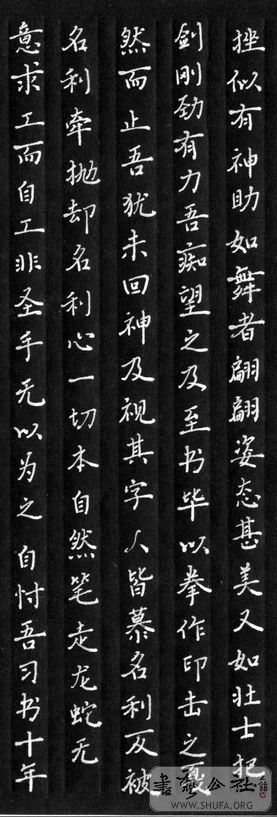 挫似有神助如舞者翩翩姿态甚美又如壮士把
剑刚劲有力吾痴望之及至书毕以拳作印击之戛
然而止吾犹未回神及视其字人皆慕名利反被
名利牵抛却名利心一切本自然笔走龙蛇无
意求工而自工非圣手无以为之 自忖吾习书十年
書法公社
WWW.SHUFA.ORG